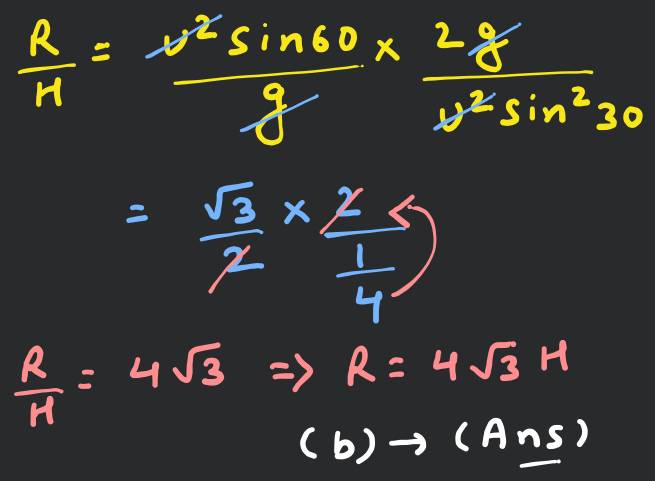 R/H = v² sin60/g × 2g/v² sin² 30
= √3/2 × 2/(1/4)
R/H = 4√3 => R = 4√3 H
(b) → (Ans)